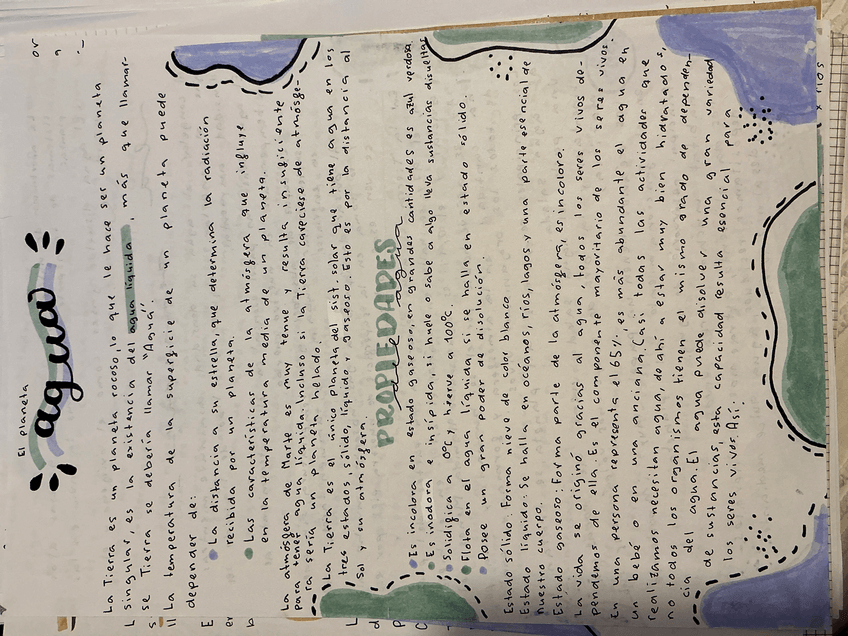 El planeta
agua
La Tierra es un planeta rocoso, lo que le hace ser un planeta
singular, es la existencia del agua líquida, más que llamar-
se Tierra se debería llamar "Agua".
La temperatura de la superficie de un planeta puede
depender de:
La distancia a su estrella, que determina la radiación
recibida por un planeta.
Las características de la atmósfera que influye
en la temperatura média de un planeta.
La atmósfera de Marte es muy tenue y resulta insuficiente
para tener agua líquida. Incluso si la Tierra careciese de atmósfe-
ra sería un planeta helado.
La Tierra es el único planeta del sist. solar que tiene agua en los
tres estados, sólido, líquido y gaseoso. Esto es por la distancia al
Sol y su atmósfera.
PROPIEDADES
del agua
Es incolora en estado gaseoso, en grandes cantidades es azul verdosa.
Es inodora e insípida, si huele o sabe a algo lleva sustancias disueltas
Solidifica a 0ºC y hierve a 100ºC.
Flota en el agua líquida si se halla en estado sólido.
Posee un gran poder de disolución.
Estado sólido: Forma nieve de color blanco
Estado líquido: Se halla en océanos, ríos, lagos y una parte esencial de
nuestro cuerpo.
Estado gaseoso: Forma parte de la atmósfera, es incoloro.
La vida se originó gracias al agua, todos los seres vivos de-
pendemos de ella. Es el componente mayoritario de los seres vivos.
En una persona representa el 65%, es más abundante el agua en
un bebé o en una anciana. Casi todas las actividades que
realizamos necesitan agua, de ahí a estar muy bien hidratados,
no todos los organismos tienen el mismo grado de dependen-
cia del agua. El agua puede disolver una gran variedad
de sustancias, esta capacidad resulta esencial para
los seres vivos. Así: